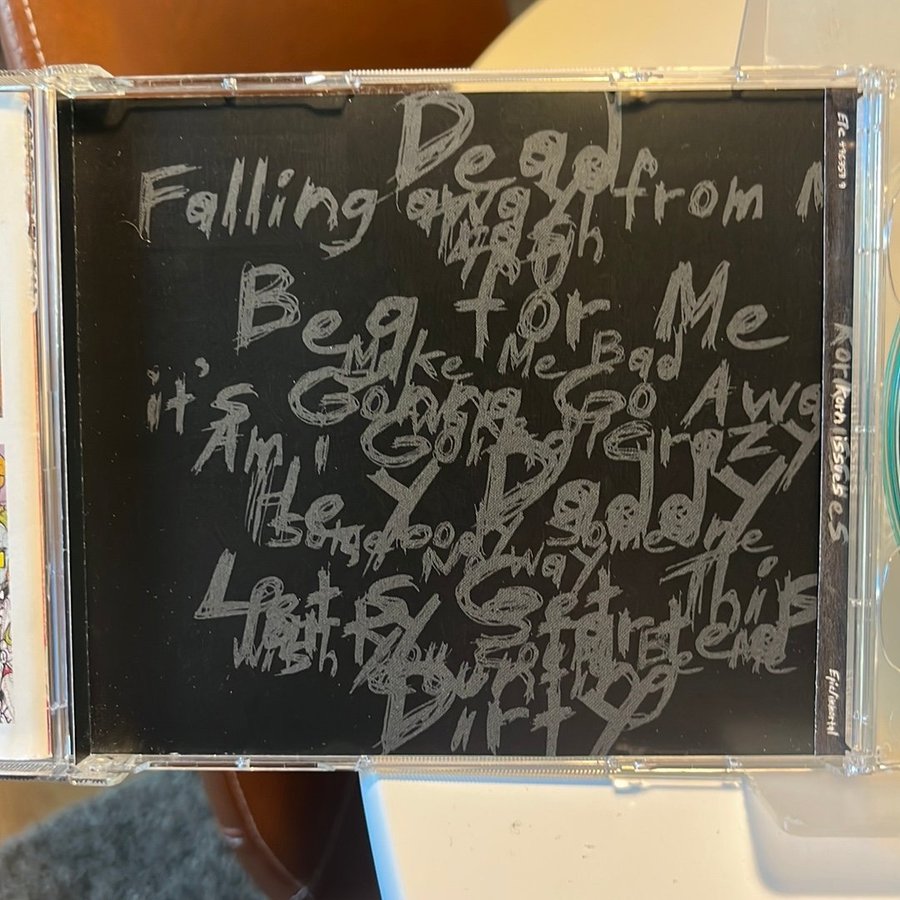 Dead
Falling away from M
Trash
4 U
Beg for Me
Make Me Bad
it's Gonna Go Awa
Am i Going Crazy
Hey Daddy
Somebody Someone
No Way
Let's Get This
Party Started
Wish You Could Be Me
Counting
Dirty
Elc 496359 9
Korn issues
Epic/Immortal